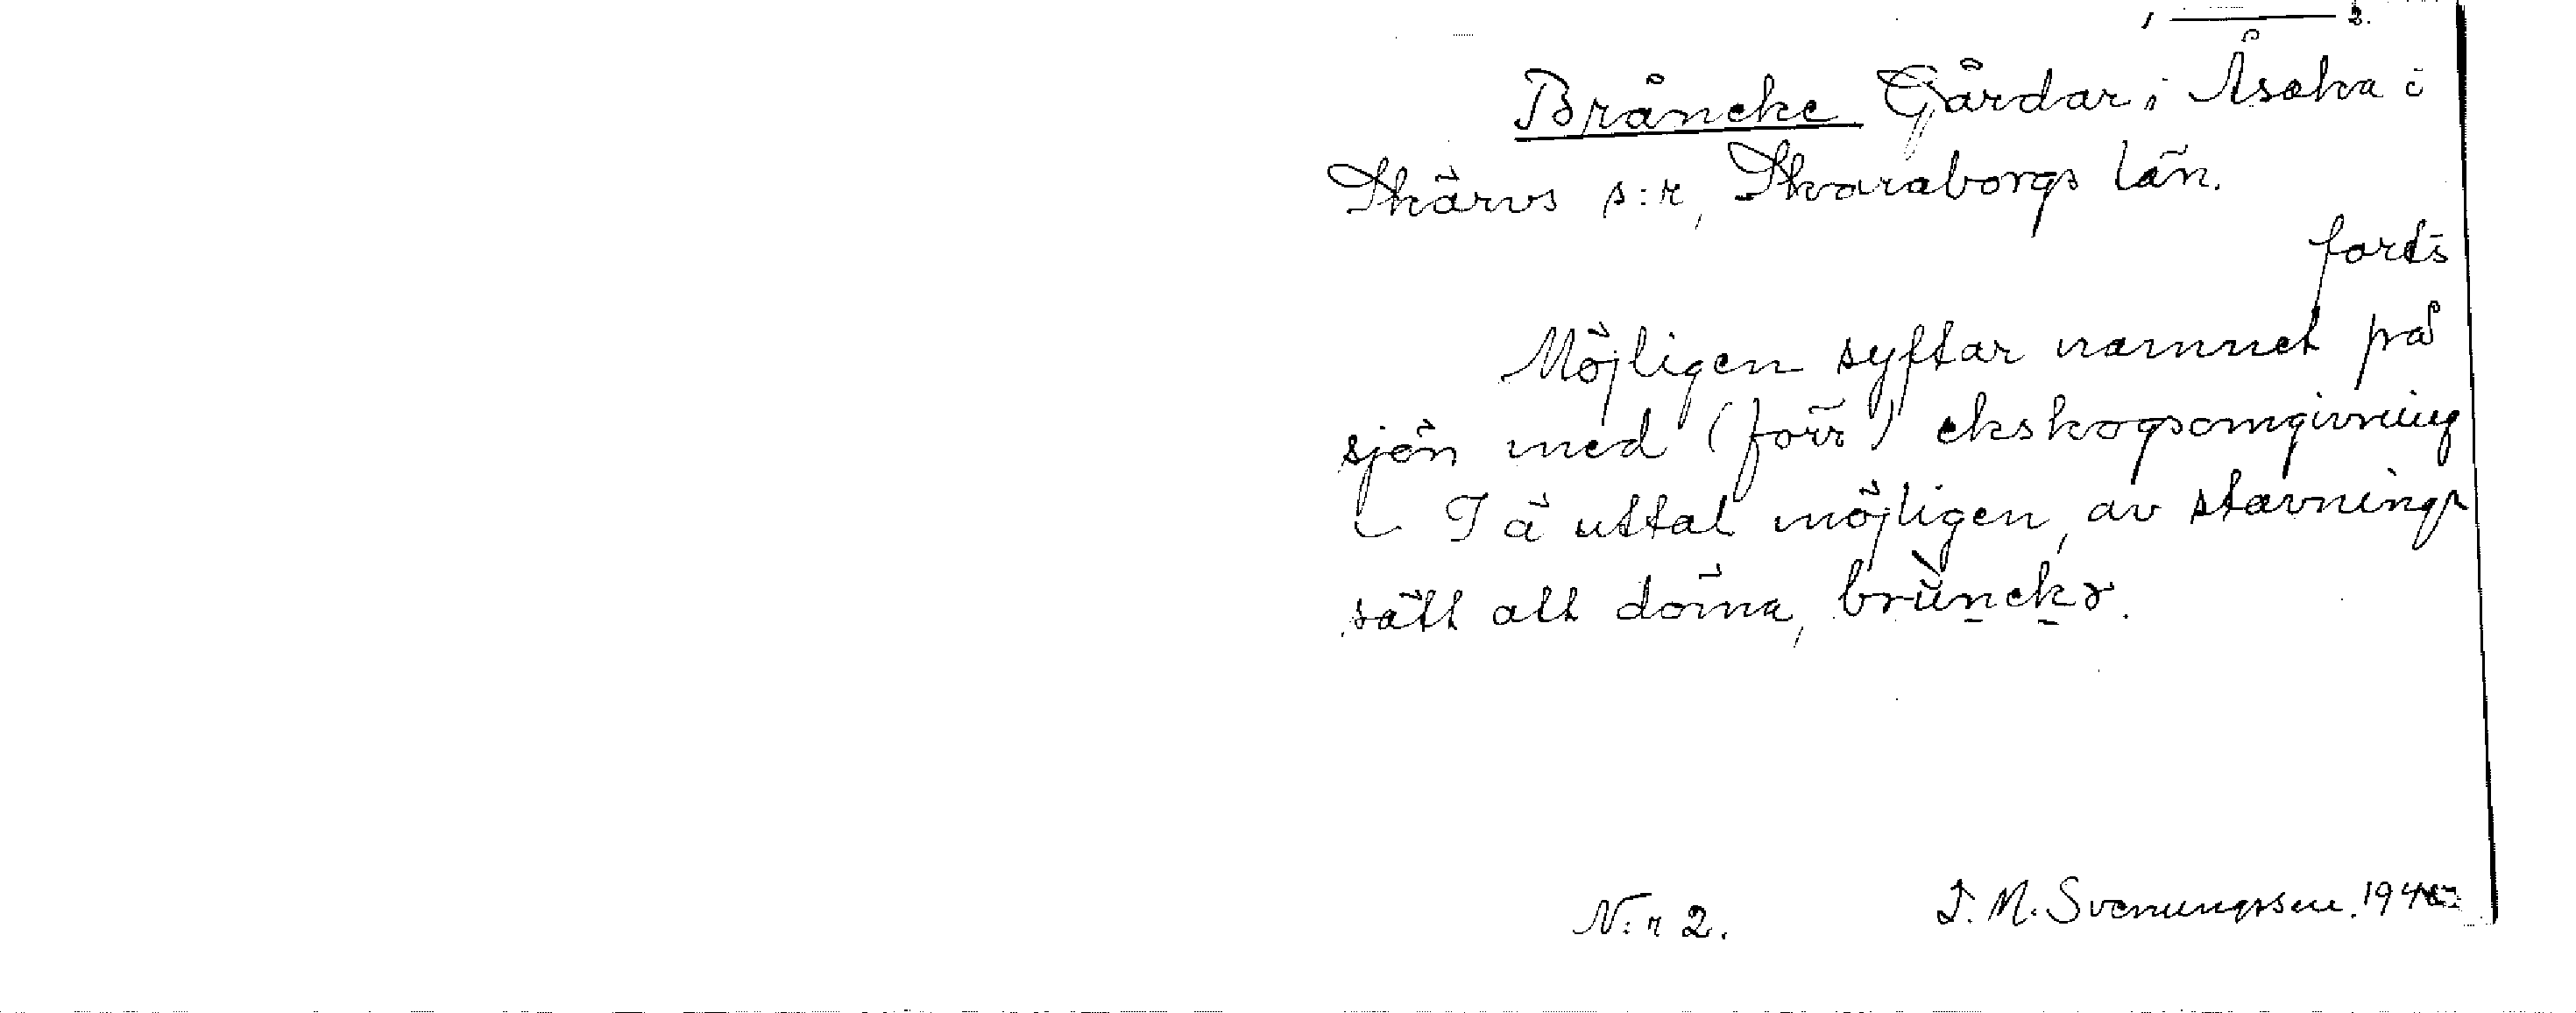 1 ——— 2.
Bråneke Gårdar i Åsaka i
Skärvs s:n, Skaraborgs län.
forts
Möjligen syftar namnet på
sjön med (förr) ekskogsomgivning
– I ä uttal möjligen, av stavnings
sätt att döma, brùneko.
N:r 2.
T. M. Svenungsson. 194